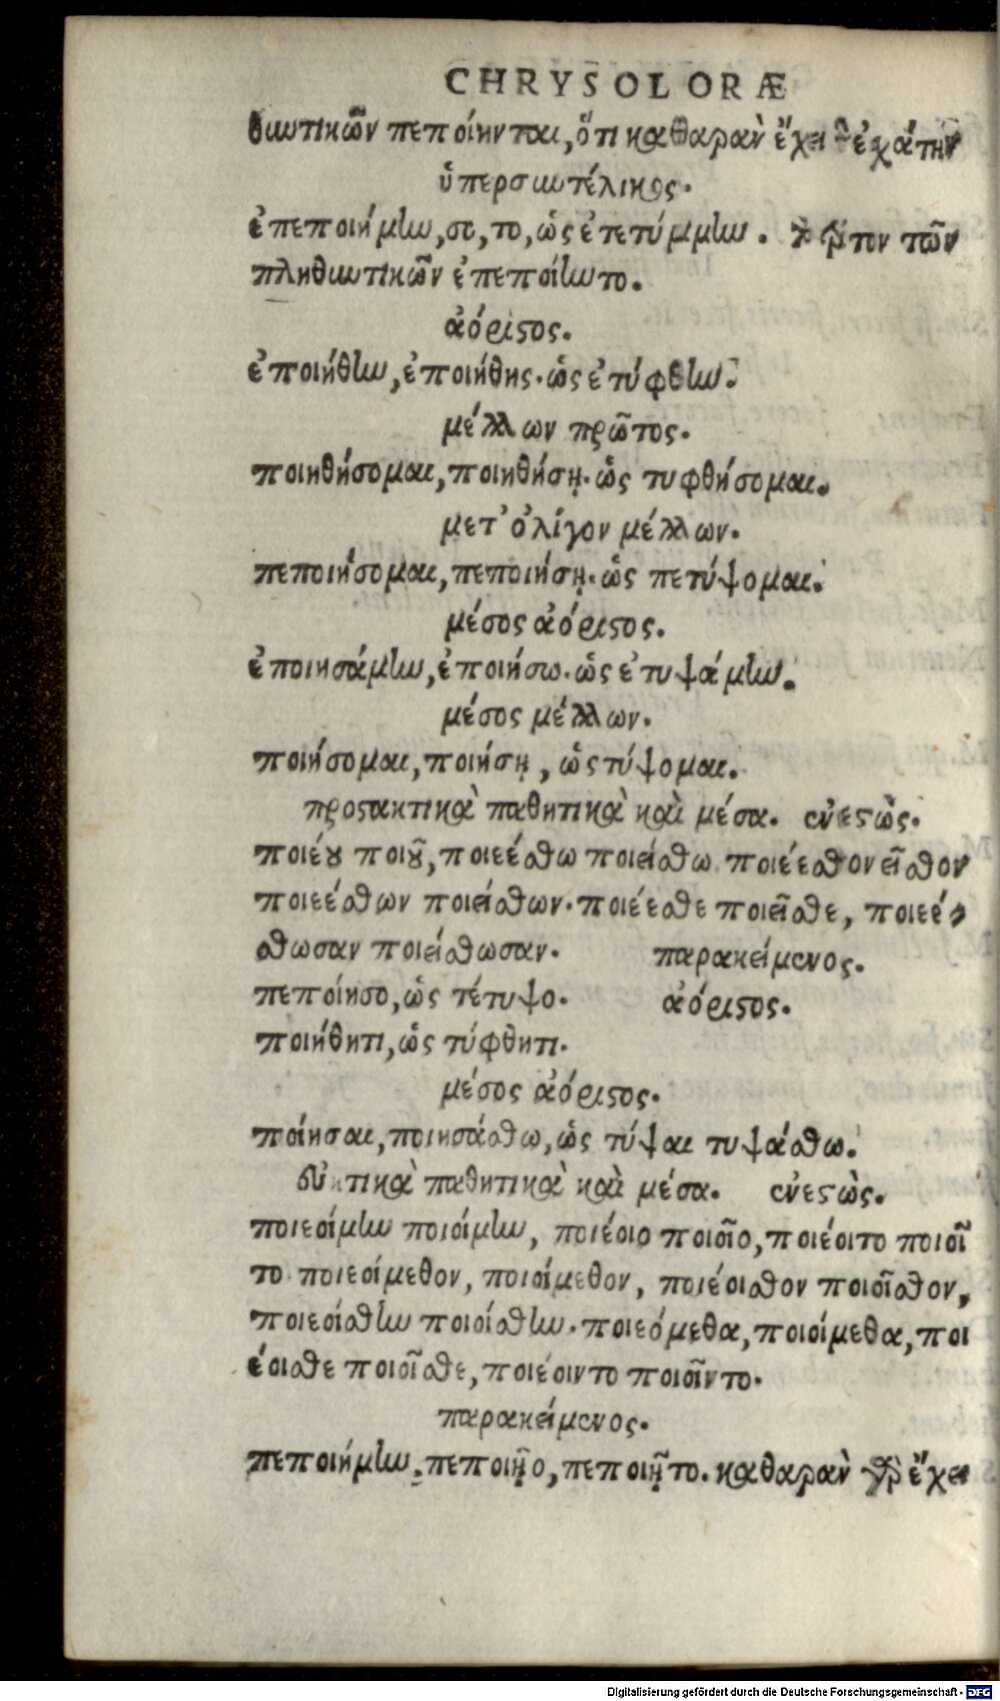 CHRYSOLORÆ
θυντικῶν πεποίηνται, ὅτι καθαρὰν ἔχει τὴν
ὑπερσυντέλικος.
ἐπεποιήμην, σο, το, ὡς ἐτετύμμην. τὸ τρίτον τῶν
πληθυντικῶν ἐπεποίηντο.
ἀόριστος.
ἐποιήθην, ἐποιήθης. ὡς ἐτύφθην.
μέλλων πρῶτος.
ποιηθήσομαι, ποιηθήσῃ. ὡς τυφθήσομαι.
μετ' ὀλίγον μέλλων.
πεποιήσομαι, πεποιήσῃ. ὡς πετύψομαι.
μέσος ἀόριστος.
ἐποιησάμην, ἐποιήσω. ὡς ἐτυψάμην.
μέσος μέλλων.
ποιήσομαι, ποιήσῃ, ὡς τύψομαι.
προστακτικὰ παθητικὰ καὶ μέσα. ἐνεστώς.
ποιέου ποιοῦ, ποιεέσθω ποιείσθω ποιέεσθον εῖσθον
ποιεέσθων ποιείσθων. ποιέεσθε ποιεῖσθε, ποιεέ-
σθωσαν ποιείσθωσαν. παρακείμενος.
πεποίησο, ὡς τέτυψο. ἀόριστος.
ποιήθητι, ὡς τύφθητι.
μέσος ἀόριστος.
ποίησαι, ποιησάσθω, ὡς τύψαι τυψάσθω.
εὐκτικὰ παθητικὰ καὶ μέσα. ἐνεστὼς.
ποιεοίμην ποιοίμην, ποιέοιο ποιοῖο, ποιέοιτο ποιοῖ
το ποιεοίμεθον, ποιοίμεθον, ποιέοισθον ποιοῖσθον,
ποιεοίσθην ποιοίσθην. ποιεόμεθα, ποιοίμεθα, ποι
έοισθε ποιοῖσθε, ποιέοιντο ποιοῖντο.
παρακείμενος.
πεποιήμην, πεποιῇο, πεποιῇτο. καθαρὰν γὰρ ἔχει
Digitalisierung gefördert durch die Deutsche Forschungsgemeinschaft - DFG